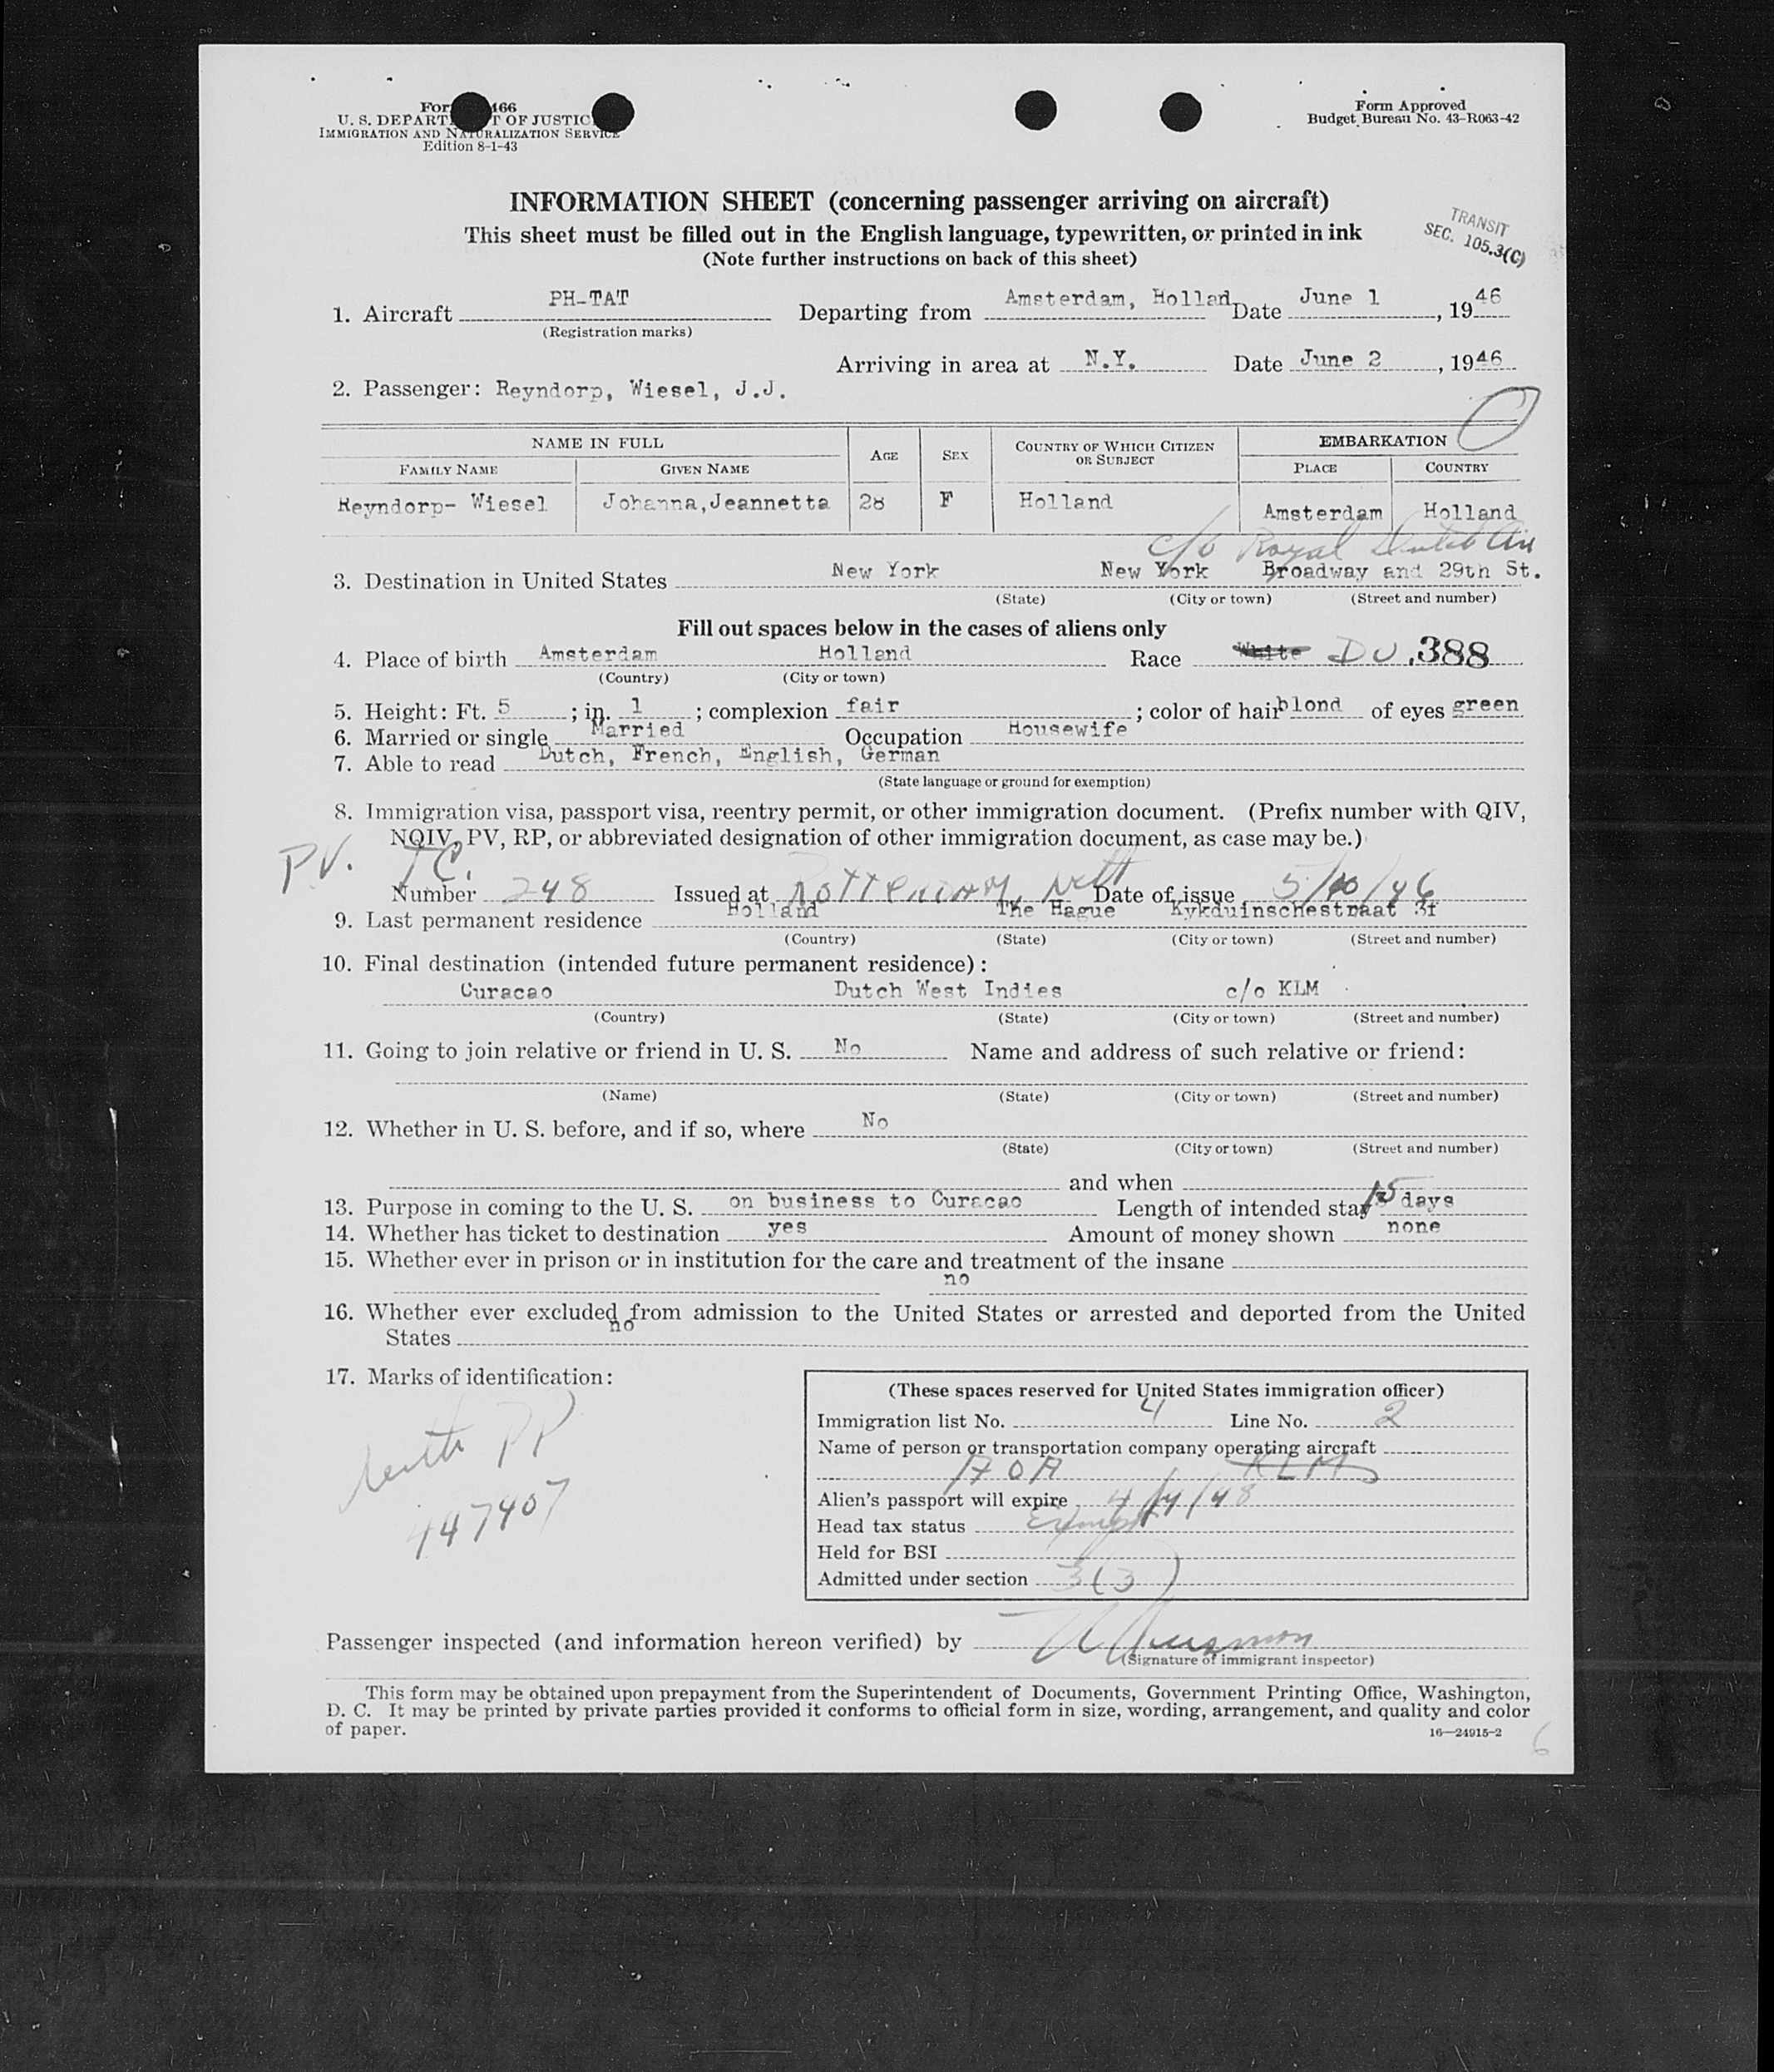 Form 466
U. S. DEPARTMENT OF JUSTICE
IMMIGRATION AND NATURALIZATION SERVICE
Edition 8-1-43
Form Approved
Budget Bureau No. 43-R063-42
INFORMATION SHEET (concerning passenger arriving on aircraft)
This sheet must be filled out in the English language, typewritten, or printed in ink
(Note further instructions on back of this sheet)
TRANSIT
SEC. 105.3(C)
1. Aircraft PH-TAT Departing from Amsterdam, Holland Date June 1, 1946
(Registration marks)
Arriving in area at N.Y. Date June 2, 1946
2. Passenger: Reyndorp, Wiesel, J.J.
NAME IN FULL AGE SEX COUNTRY OF WHICH CITIZEN OR SUBJECT EMBARKATION
FAMILY NAME GIVEN NAME PLACE COUNTRY
Reyndorp- Wiesel Johanna,Jeannetta 28 F Holland Amsterdam Holland
c/o Royal Dutch Air
3. Destination in United States New York New York Broadway and 29th St.
(State) (City or town) (Street and number)
Fill out spaces below in the cases of aliens only
4. Place of birth Amsterdam Holland Race White DU .388
(Country) (City or town)
5. Height: Ft. 5; in. 1; complexion fair; color of hair blond of eyes green
6. Married or single Married Occupation Housewife
7. Able to read Dutch, French, English, German
(State language or ground for exemption)
8. Immigration visa, passport visa, reentry permit, or other immigration document. (Prefix number with QIV,
NQIV, PV, RP, or abbreviated designation of other immigration document, as case may be.)
P.V. T.C.
Number 248 Issued at Rotterdam, Neth Date of issue 5/10/46
9. Last permanent residence Holland The Hague Kykduinschestraat
(Country) (State) (City or town) (Street and number)
10. Final destination (intended future permanent residence):
Curacao Dutch West Indies c/o KLM
(Country) (State) (City or town) (Street and number)
11. Going to join relative or friend in U. S. No Name and address of such relative or friend:
(Name) (State) (City or town) (Street and number)
12. Whether in U. S. before, and if so, where No
(State) (City or town) (Street and number)
and when
13. Purpose in coming to the U. S. on business to Curacao Length of intended stay 15 days
14. Whether has ticket to destination yes Amount of money shown none
15. Whether ever in prison or in institution for the care and treatment of the insane
no
16. Whether ever excluded from admission to the United States or arrested and deported from the United
States no
17. Marks of identification:
Neth PP
447407
(These spaces reserved for United States immigration officer)
Immigration list No. 4 Line No. 2
Name of person or transportation company operating aircraft
AOA KLM
Alien's passport will expire 4/4/48
Head tax status Exempt
Held for BSI
Admitted under section 3(3)
Passenger inspected (and information hereon verified) by
(Signature of immigrant inspector)
This form may be obtained upon prepayment from the Superintendent of Documents, Government Printing Office, Washington,
D. C. It may be printed by private parties provided it conforms to official form in size, wording, arrangement, and quality and color
of paper.
16—24915-2
6